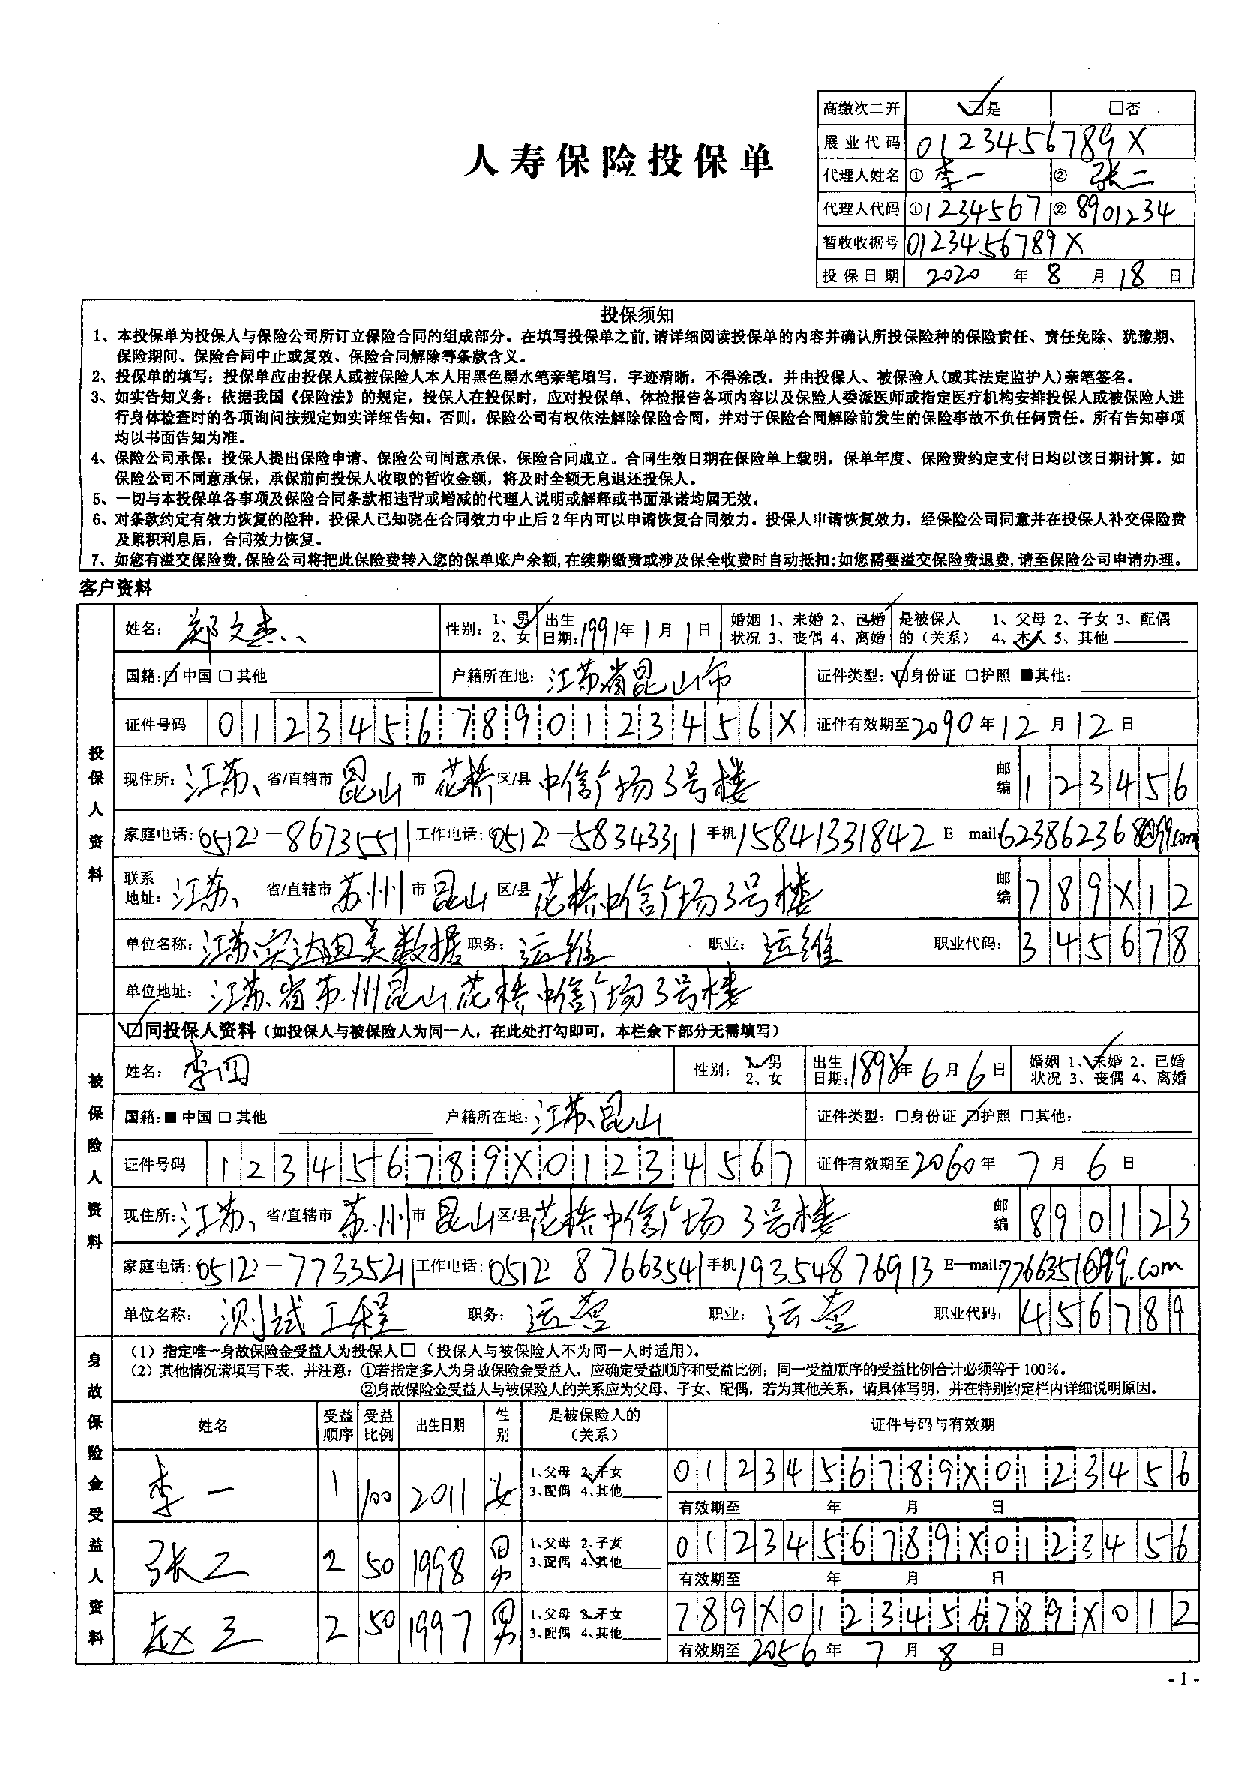 人寿保险投保单
高缴次二开 ☑是 □否
展业代码 0123456789X
代理人姓名 ① 李一 ② 张二
代理人代码 ①1234567 ②8901234
暂收收据号 0123456789X
投保日期 2020 年 8 月 18 日
投保须知
1、本投保单为投保人与保险公司所订立保险合同的组成部分。在填写投保单之前,请详细阅读投保单的内容并确认所投保险种的保险责任、责任免除、犹豫期、
保险期间、保险合同中止或复效、保险合同解除等条款含义。
2、投保单的填写：投保单应由投保人或被保险人本人用黑色墨水笔亲笔填写，字迹清晰，不得涂改，并由投保人、被保险人(或其法定监护人)亲笔签名。
3、如实告知义务：依据我国《保险法》的规定，投保人在投保时，应对投保单、体检报告各项内容以及保险人委派医师或指定医疗机构安排投保人或被保险人进
行身体检查时的各项询问按规定如实详细告知。否则，保险公司有权依法解除保险合同，并对于保险合同解除前发生的保险事故不负任何责任。所有告知事项
均以书面告知为准。
4、保险公司承保：投保人提出保险申请、保险公司同意承保、保险合同成立。合同生效日期在保险单上载明，保单年度、保险费约定支付日均以该日期计算。如
保险公司不同意承保，承保前向投保人收取的暂收金额，将及时全额无息退还投保人。
5、一切与本投保单各事项及保险合同条款相违背或增减的代理人说明或解释或书面承诺均属无效。
6、对条款约定有效力恢复的险种，投保人已知晓在合同效力中止后2年内可以申请恢复合同效力。投保人申请恢复效力，经保险公司同意并在投保人补交保险费
及累积利息后，合同效力恢复。
7、如您有溢交保险费,保险公司将把此保险费转入您的保单账户余额,在续期缴费或涉及保全收费时自动抵扣;如您需要溢交保险费退费,请至保险公司申请办理。
客户资料
投保人资料
姓名： 郑文杰 性别： 1、男 2、女 出生日期: 1991年 1 月 1 日 婚姻状况 1、未婚 2、已婚 3、丧偶 4、离婚 是被保人的（关系） 1、父母 2、子女 3、配偶 4、本人 5、其他
国籍:☑中国 □其他 户籍所在地: 江苏省昆山市 证件类型: ☑身份证 □护照 ■其他:
证件号码 01234567890123456X 证件有效期至2090年12月12日
现住所: 江苏 省/直辖市 昆山 市 花桥 区/县 中信广场3号楼 邮编 123456
家庭电话: 0512-86735511 工作电话: 0512-58343311 手机 15841331842 E mail 623862368@99.com
联系地址: 江苏 省/直辖市 苏州 市 昆山 区/县 花桥中信广场3号楼 邮编 789X12
单位名称: 江苏实达迪美数据 职务: 运维 职业: 运维 职业代码: 345678
单位地址: 江苏省苏州昆山花桥中信广场3号楼
被保险人资料
☑同投保人资料（如投保人与被保险人为同一人，在此处打勾即可，本栏余下部分无需填写）
姓名: 李四 性别: 1、男 2、女 出生日期: 1898年 6 月 6 日 婚姻状况 1、未婚 2、已婚 3、丧偶 4、离婚
国籍:■ 中国 □ 其他 户籍所在地: 江苏昆山 证件类型: □身份证 ☑护照 □其他:
证件号码 123456789X01234567 证件有效期至2060年 7 月 6 日
现住所: 江苏 省/直辖市 苏州 市 昆山 区/县 花桥中信广场 3号楼 邮编 890123
家庭电话: 0512-7733521 工作电话: 0512 87663541 手机 19354876913 E—mail: 7766351@99.com
单位名称: 测试工程 职务: 运营 职业: 运营 职业代码: 456789
身故保险金受益人资料
（1）指定唯一身故保险金受益人为投保人□（投保人与被保险人不为同一人时适用）。
（2）其他情况请填写下表，并注意：①若指定多人为身故保险金受益人，应确定受益顺序和受益比例；同一受益顺序的受益比例合计必须等于100%。
②身故保险金受益人与被保险人的关系应为父母、子女、配偶，若为其他关系，请具体写明，并在特别约定栏内详细说明原因。
姓名 受益顺序 受益比例 出生日期 性别 是被保险人的（关系） 证件号码与有效期
李一 1 100 2011 女 1、父母 2、子女 3、配偶 4、其他 0123456789X0123456
有效期至 年 月 日
张二 2 50 1998 男 1、父母 2、子女 3、配偶 4、其他 0123456789X0123456
有效期至 年 月 日
赵三 2 50 1997 男 1、父母 2、子女 3、配偶 4、其他 789X0123456789X012
有效期至 2056 年 7 月 8 日
- 1 -